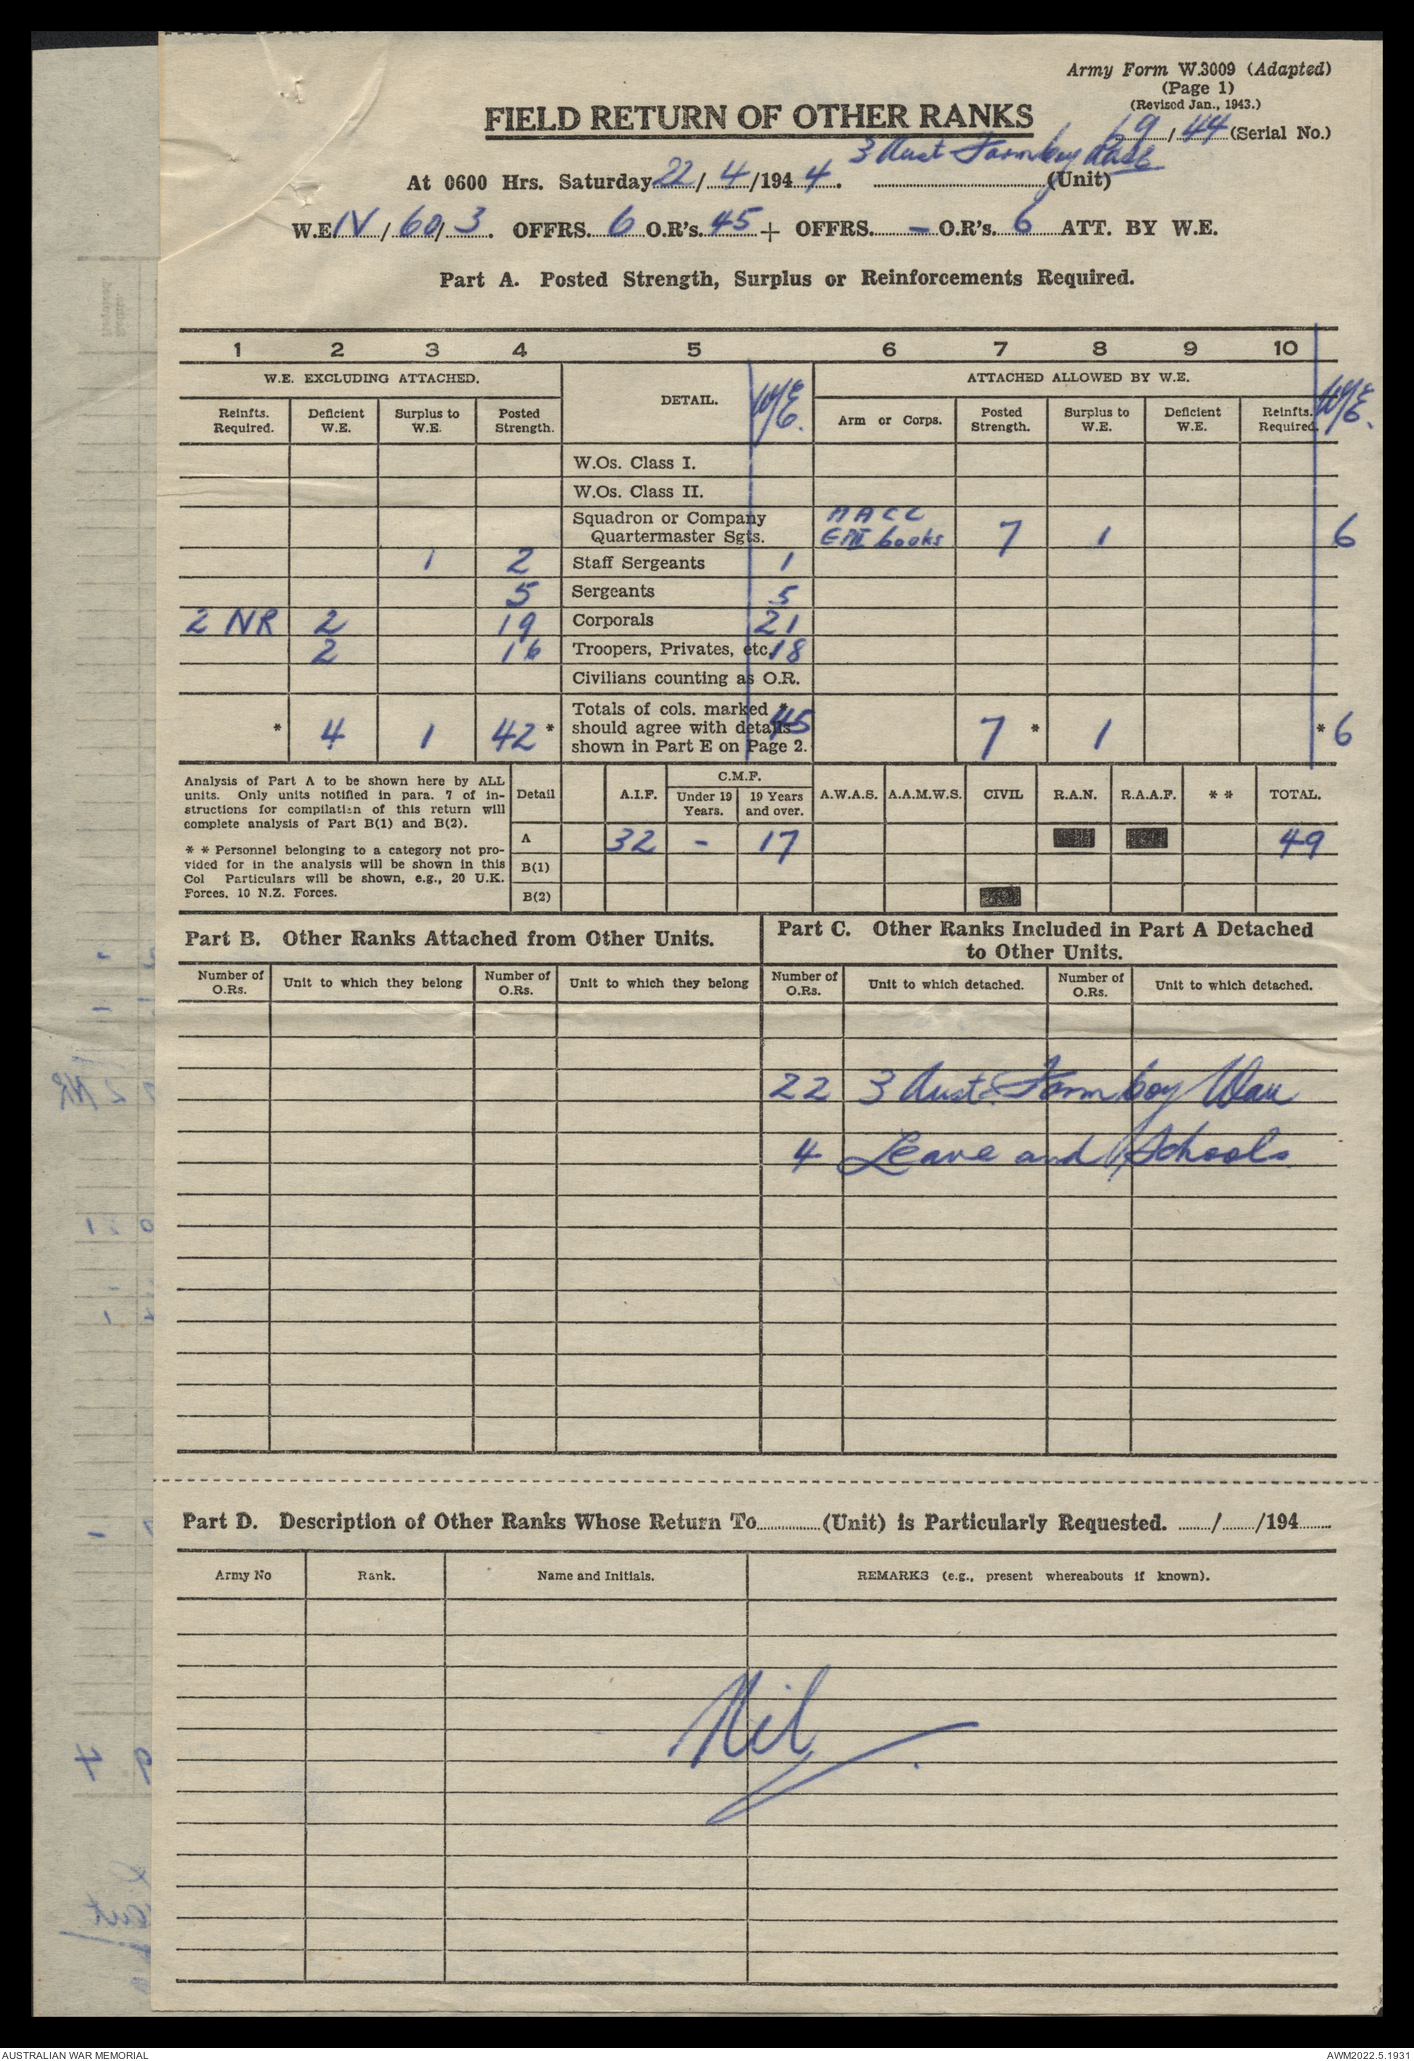 Army Form W.3009 (Adapted)
(Page 1)
(Revised Jan., 1943.)
FIELD RETURN OF OTHER RANKS
69/44 (Serial No.)
3 Aust Farm Coy
At 0600 Hrs. Saturday 22/4/1944. (Unit)
W.E. IV/60/3. OFFRS. 6 O.R's. 45 + OFFRS. - O.R's. 6 ATT. BY W.E.
Part A. Posted Strength, Surplus or Reinforcements Required.
1 2 3 4 5 6 7 8 9 10
W.E. EXCLUDING ATTACHED. DETAIL. W/E ATTACHED ALLOWED BY W.E. W/E
Reinfts. Required. Deficient W.E. Surplus to W.E. Posted Strength. Arm or Corps. Posted Strength. Surplus to W.E. Deficient W.E. Reinfts. Required.
W.Os. Class I.
W.Os. Class II.
Squadron or Company Quartermaster Sgts. AACC 7 1 6
1 2 Staff Sergeants 1
5 Sergeants 5
2 NR 2 19 Corporals 21
2 16 Troopers, Privates, etc. 18
Civilians counting as O.R.
* 4 1 42 * Totals of cols. marked * should agree with details shown in Part E on Page 2. 45 7 * 1 * 6
Analysis of Part A to be shown here by ALL
units. Only units notified in para. 7 of in-
structions for compilation of this return will
complete analysis of Part B(1) and B(2).
* * Personnel belonging to a category not pro-
vided for in the analysis will be shown in this
Col Particulars will be shown, e.g., 20 U.K.
Forces. 10 N.Z. Forces.
Detail A.I.F. C.M.F. Under 19 Years. 19 Years and over. A.W.A.S. A.A.M.W.S. CIVIL R.A.N. R.A.A.F. * * TOTAL.
A 32 - 17 49
B(1)
B(2)
Part B. Other Ranks Attached from Other Units.
Part C. Other Ranks Included in Part A Detached
to Other Units.
Number of O.Rs. Unit to which they belong Number of O.Rs. Unit to which they belong Number of O.Rs. Unit to which detached. Number of O.Rs. Unit to which detached.
22 3 Aust Farm Coy Wau
4 Leave and Schools
Part D. Description of Other Ranks Whose Return To (Unit) is Particularly Requested. / /194
Army No Rank. Name and Initials. REMARKS (e.g., present whereabouts if known).
Nil
AUSTRALIAN WAR MEMORIAL
AWM2022.5.1931